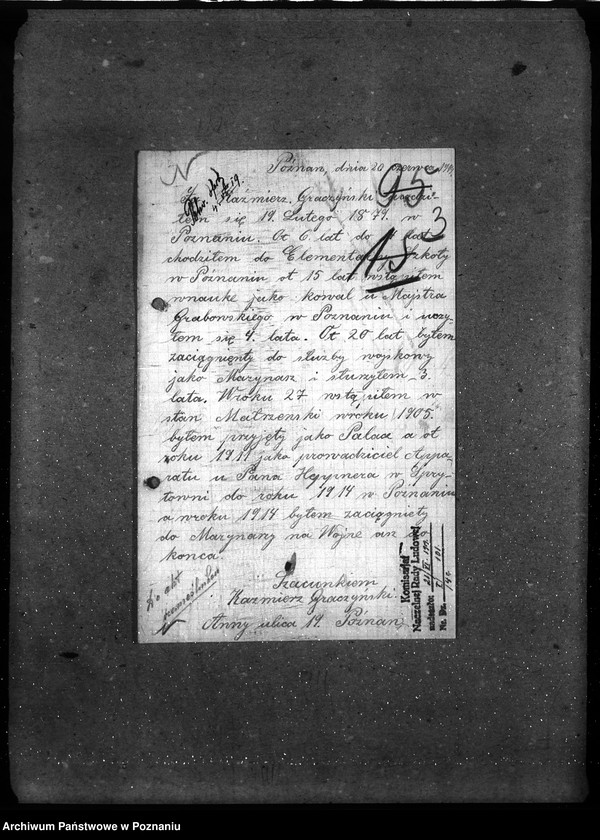 Póznan, dnia 20 czerwca 1919
95
Kaźmierz. Graczyński
łem się 19. Lutego 1879. w
3
Poznaniu. Ot 6. lat do lat
15
chodziłem do Elementarny Szkoły
w Póznaniu ot 15 lat wstąpiłem
wnaukę jako kowal u Majstra
Grabowskiego w Poznaniu i uczy-
łem się 4. lata. Ot 20 lat byłem
zaciągnięnty do służby wojskowy
jako Marynasz i służyłem 3.
lata. Wroku 27 wstąpiłem w
stan Matrzenski wroku 1905.
byłem przyjęty jako Palacz a ot
roku 1911 jako prowadziciel Appa-
ratu u Pana Heppnera w Spry-
towni do roku 1914 w Poznaniu
a wroku 1914 byłem zaciągnięty
do Marynarz na Wojne aż do
konca.
Szacunkiem
Kaźmierz Graczyński.
Anny ulica 19. Póznan
Komisarjat
Naczelnej Rady Ludowej
Archiwum Państwowe w Poznaniu